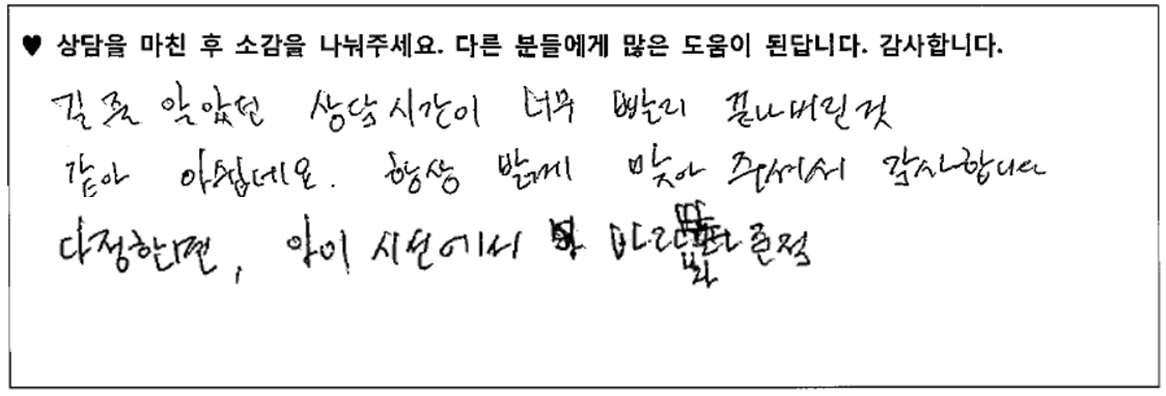 ♥ 상담을 마친 후 소감을 나눠주세요. 다른 분들에게 많은 도움이 된답니다. 감사합니다.
길줄 알았던 상담시간이 너무 빨리 끝나버린것
같아 아쉽네요. 항상 밝게 맞아 주셔서 감사합니다
다정한면, 아이 시선에서 바라 준적